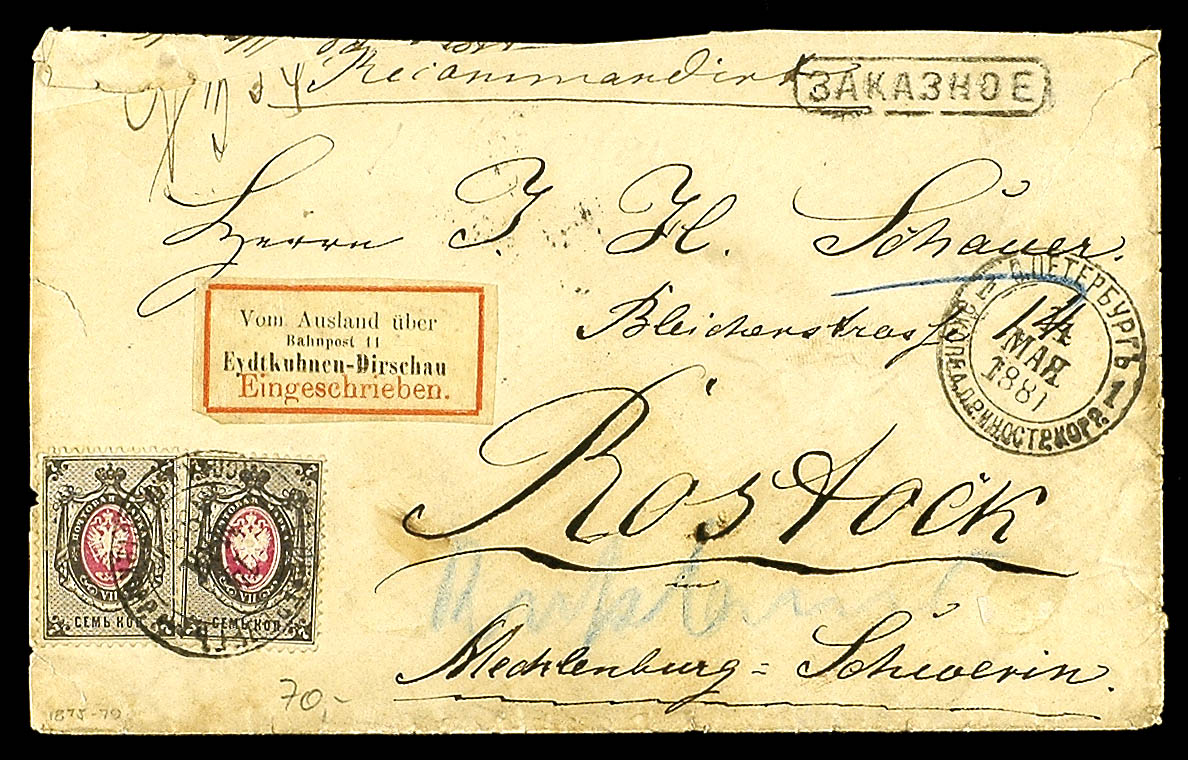 Recommandirt
ЗАКАЗНОЕ
Herrn J. H. Schauer.
Bleicherstrasse
Vom Ausland über
Bahnpost 11
Eydtkuhnen-Dirschau
Eingeschrieben.
С. ПЕТЕРБУРГЪ 1
14
МАЯ
1881
Rostock
in
Mecklenburg = Schwerin.
СЕМЬ КОП
СЕМЬ КОП
70.-
1875-79